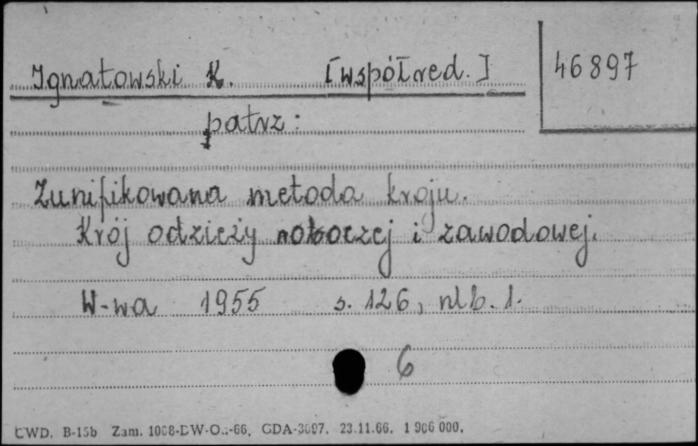 Ignatowski K. [współred.] 46897
patrz:
Zunifikowana metoda kroju.
Krój odzieży roboczej i zawodowej.
W-wa 1955 s. 126, nlb. 1.
6
CWD. B-15b Zam. 1008-DW-O.-66, GDA-3097. 23.11.66. 1 906 000.